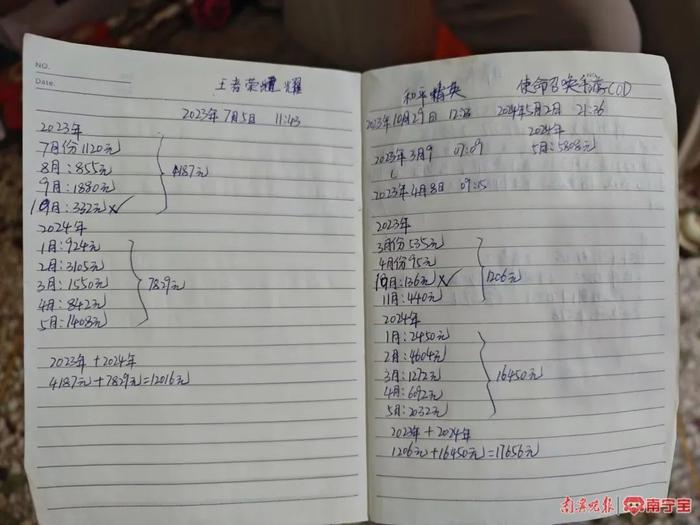 NO.
Date.
王者荣耀
2023年7月5日 11:43
2023年
7月份1120元
8月:855元
9月:1880元
10月:332元
4187元
2024年
1月:924元
2月:3105元
3月:1550元
4月:842元
5月:1408元
7829元
2023年+2024年
4187元+7829元=12016元
和平精英
2023年10月29日 12:26
2023年3月9 07:09
2023年4月8日 09:15
使命召唤手游COD
2024年5月2日 21:36
2024年
5月:5808元
2023年
3月份535元
4月份95元
10月:136元
11月:440元
1206元
2024年
1月:2450元
2月:4604元
3月:1272元
4月:6092元
5月:2032元
16450元
2023年+2024年
1206元+16450元=17656元
南宁晚报 南宁宝